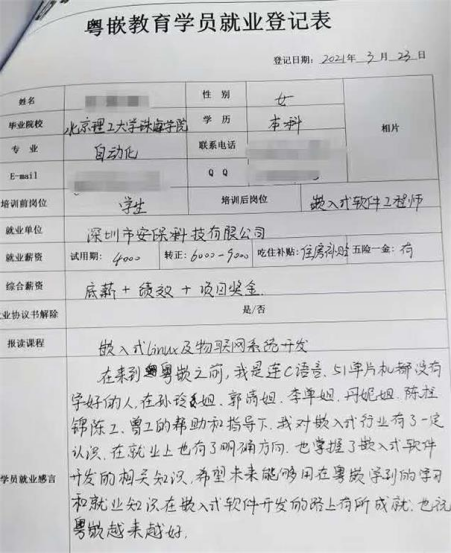 粤嵌教育学员就业登记表
登记日期: 2021年3月23日
姓名 性别 女
毕业院校 北京理工大学珠海学院 学历 本科 相片
专业 自动化 联系电话
E-mail QQ
培训前岗位 学生 培训后岗位 嵌入式软件工程师
就业单位 深圳市安保科技有限公司
就业薪资 试用期: 4000 转正: 6000-9000 吃住补贴: 住房补贴 五险一金: 有
综合薪资 底薪+绩效+项目奖金
业协议书解除 是/否
报读课程 嵌入式linux及物联网系统开发
学员就业感言
在来到粤嵌之前,我是连C语言、51单片机都没有
学好的人,在孙 姐、郭 姐、李单姐、丹妮姐、陈
锦陈工、 工的帮助和指导下,我对嵌入式行业有了一定
认识,在就业上也有了明确方向.也掌握了嵌入式软件
开发的相关知识,希望未来能够用在粤嵌学到的学习
和就业知识在嵌入式软件开发的路上有所成就.也祝
粤嵌越来越好.